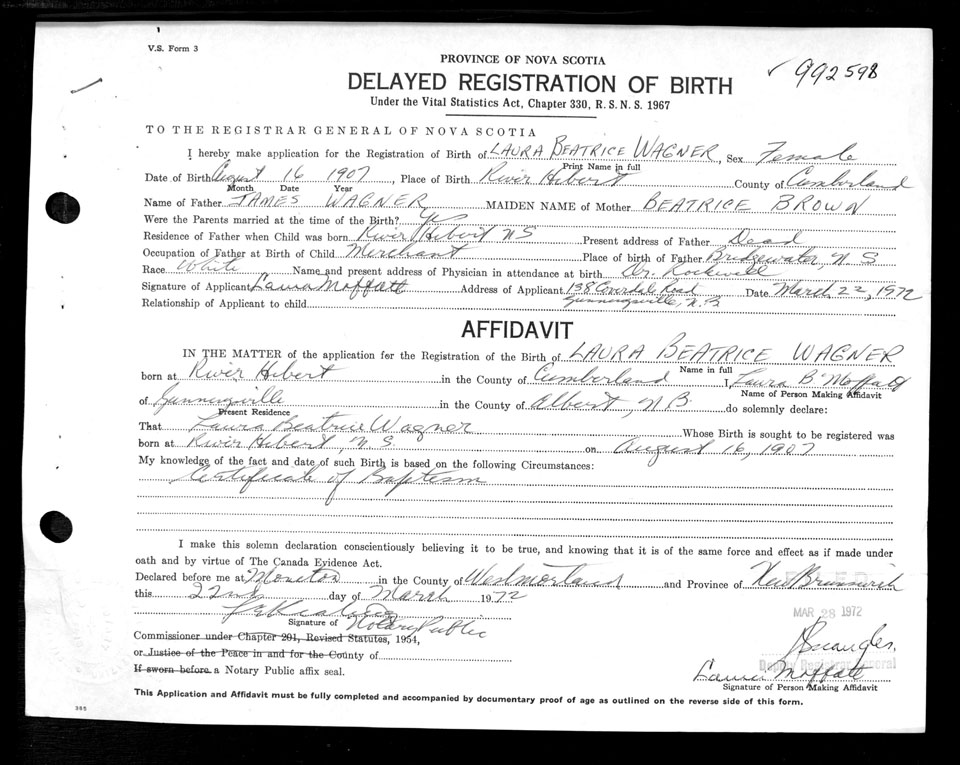 V.S. Form 3
PROVINCE OF NOVA SCOTIA
✓ 992598
DELAYED REGISTRATION OF BIRTH
Under the Vital Statistics Act, Chapter 330, R.S.N.S. 1967
TO THE REGISTRAR GENERAL OF NOVA SCOTIA
I hereby make application for the Registration of Birth of LAURA BEATRICE WAGNER, Sex Female
Print Name in full
Date of Birth August 16 1907, Place of Birth River Hebert County of Cumberland
Month Date Year
Name of Father JAMES WAGNER MAIDEN NAME of Mother BEATRICE BROWN
Were the Parents married at the time of the Birth? Yes
Residence of Father when Child was born River Hebert NS Present address of Father Dead
Occupation of Father at Birth of Child Merchant Place of birth of Father Bridgewater, N.S
Race White Name and present address of Physician in attendance at birth Dr. Rockwell
Signature of Applicant Laura Moffatt Address of Applicant 138 Coverdale Road Date March 22, 1972
Gunningsville, N.B
Relationship of Applicant to child
AFFIDAVIT
IN THE MATTER of the application for the Registration of the Birth of LAURA BEATRICE WAGNER
Name in full
born at River Hebert in the County of Cumberland I Laura B Moffatt
Name of Person Making Affidavit
of Gunningsville in the County of Albert, N.B. do solemnly declare:
Present Residence
That Laura Beatrice Wagner Whose Birth is sought to be registered was
born at River Hebert, N.S. on August 16, 1907
My knowledge of the fact and date of such Birth is based on the following Circumstances:
Certificate of Baptism
I make this solemn declaration conscientiously believing it to be true, and knowing that it is of the same force and effect as if made under
oath and by virtue of The Canada Evidence Act.
Declared before me at Moncton in the County of Westmorland and Province of New Brunswick
this 22nd day of March 1972
MAR 28 1972
Signature of Notary Public
Commissioner under Chapter 201, Revised Statutes, 1954,
or Justice of the Peace in and for the County of
Deputy Registrar General
If sworn before a Notary Public affix seal.
Laura Moffatt
Signature of Person Making Affidavit
This Application and Affidavit must be fully completed and accompanied by documentary proof of age as outlined on the reverse side of this form.
385